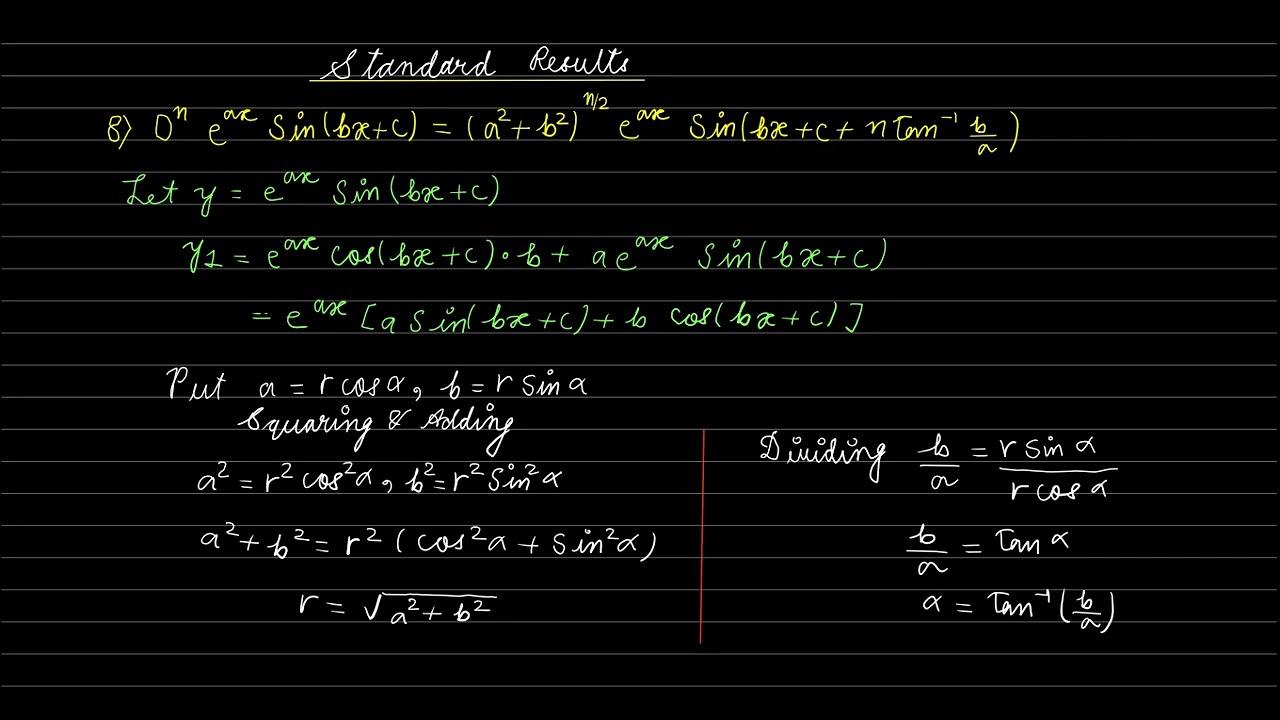 Standard Results
8) Dⁿ e^{ax} Sin(bx+c) = (a²+b²)^{n/2} e^{ax} Sin(bx+c+n Tan⁻¹ b/a)
Let y = e^{ax} Sin(bx+c)
y₁ = e^{ax} cos(bx+c)·b + a e^{ax} Sin(bx+c)
= e^{ax} [a Sin(bx+c) + b cos(bx+c)]
Put a = r cos α, b = r Sin α
Squaring & Adding
a² = r² cos²α, b² = r² Sin²α
a² + b² = r² (cos²α + Sin²α)
r = √(a² + b²)
Dividing b/a = r Sin α / r cos α
b/a = Tan α
α = Tan⁻¹(b/a)